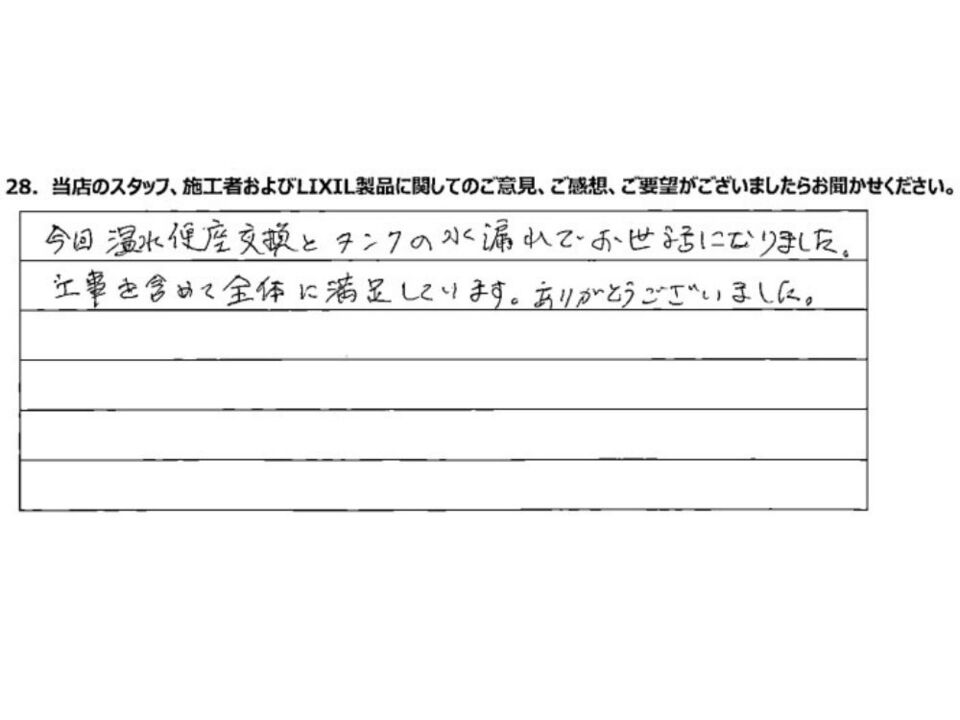 28. 当店のスタッフ、施工者およびLIXIL製品に関してのご意見、ご感想、ご要望がございましたらお聞かせください。
今回温水便座交換とタンクの水漏れでお世話になりました。
工事を含めて全体に満足しています。ありがとうございました。